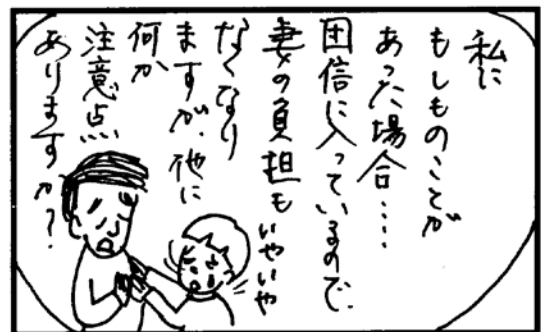 私に
もしものことが
あった場合‥‥
団信に入っているので、
妻の負担も
なくなり
ますが、他に
何か
注意点
ありますか?
いやいや